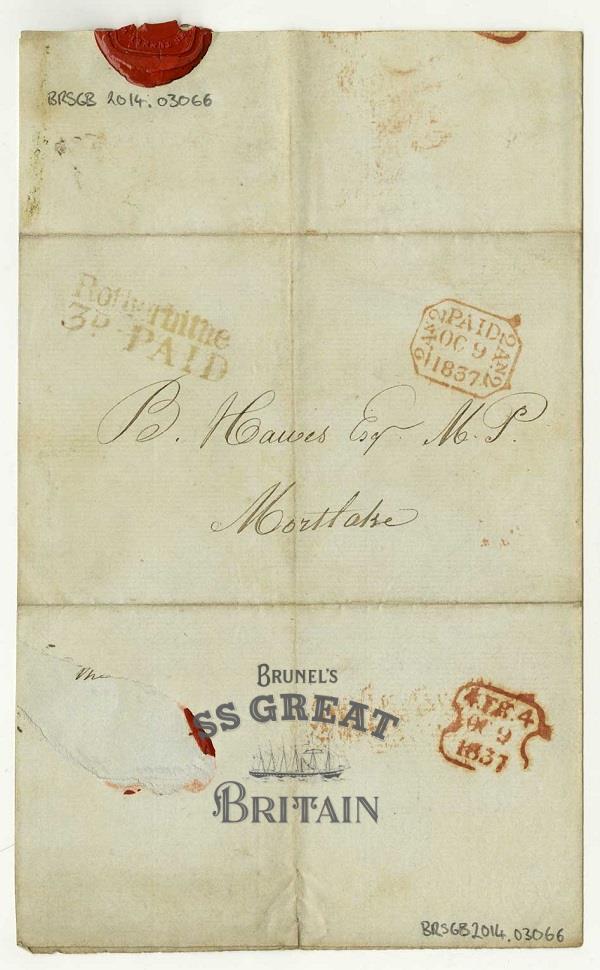 BRSGB 2014.03066
Rotherhithe
3D PAID
PAID
2 AN 2
2 AN 2
OC 9
1837
B. Hawes Esqr. M.P.
Mortlake
BRUNEL'S
SS GREAT
BRITAIN
4
4
OC 9
1837
BRSGB 2014.03066